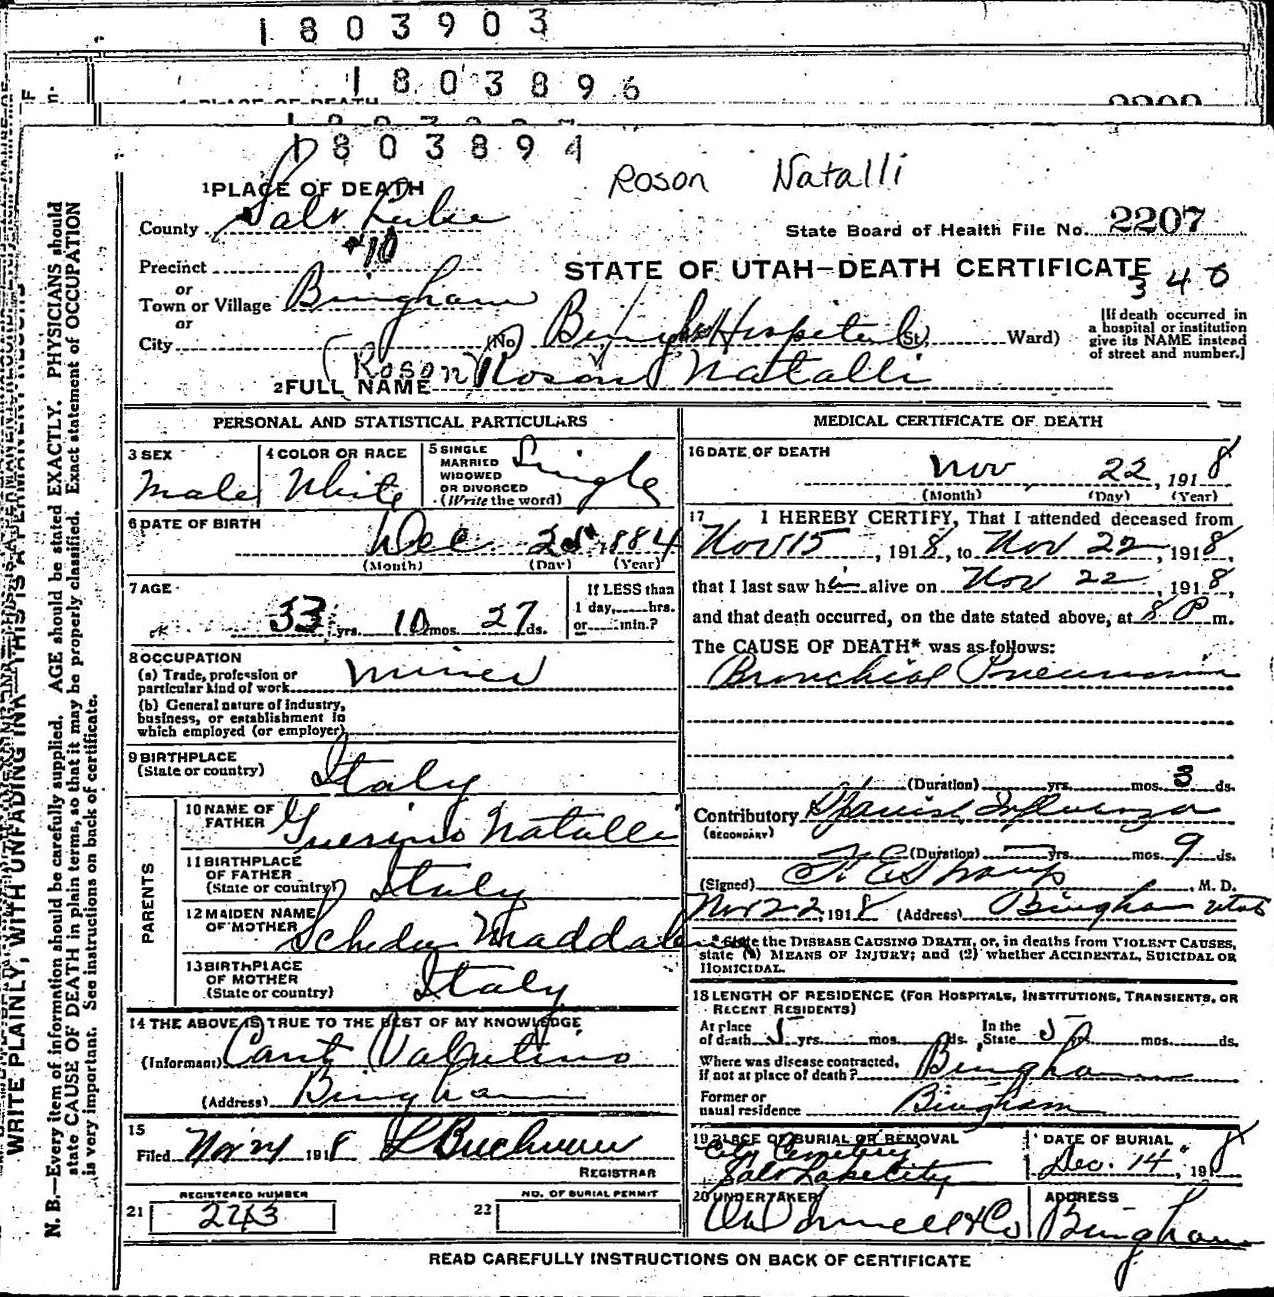 1803903
1803896
1 PLACE OF DEATH
2208
1803894
Roson Natalli
1 PLACE OF DEATH
County Salt Lake
State Board of Health File No. 2207
#10
Precinct
STATE OF UTAH—DEATH CERTIFICATE
340
or
Town or Village Bingham
or
City (No. Bingh Hospital St. Ward)
[If death occurred in
a hospital or institution
give its NAME instead
of street and number.]
Roson
2 FULL NAME Roson Natalli
PERSONAL AND STATISTICAL PARTICULARS
3 SEX
Male
4 COLOR OR RACE
White
5 SINGLE
MARRIED
WIDOWED
OR DIVORCED
(Write the word)
Single
6 DATE OF BIRTH
Dec 25, 1884
(Month) (Day) (Year)
7 AGE
33 yrs. 10 mos. 27 ds.
If LESS than
1 day, hrs.
or min.?
8 OCCUPATION
(a) Trade, profession or
particular kind of work Miner
(b) General nature of industry,
business, or establishment in
which employed (or employer)
9 BIRTHPLACE
(State or country) Italy
PARENTS
10 NAME OF
FATHER Guerino Natalli
11 BIRTHPLACE
OF FATHER
(State or country) Italy
12 MAIDEN NAME
OF MOTHER Maddalena
13 BIRTHPLACE
OF MOTHER
(State or country) Italy
14 THE ABOVE IS TRUE TO THE BEST OF MY KNOWLEDGE
(Informant) Valentino
(Address) Bingham
15
Filed Nov 24 1918
REGISTRAR
REGISTERED NUMBER
21 2243
NO. OF BURIAL PERMIT
22
MEDICAL CERTIFICATE OF DEATH
16 DATE OF DEATH
Nov 22, 1918
(Month) (Day) (Year)
17 I HEREBY CERTIFY, That I attended deceased from
Nov 15, 1918, to Nov 22, 1918,
that I last saw him alive on Nov 22, 1918,
and that death occurred, on the date stated above, at 8 P m.
The CAUSE OF DEATH* was as follows:
Bronchial Pneumonia
(Duration) yrs. mos. 3 ds.
Contributory Spanish Influenza
(SECONDARY)
(Duration) yrs. mos. 9 ds.
(Signed) F. E. Straup, M. D.
Nov 22 1918 (Address) Bingham Utah
*State the DISEASE CAUSING DEATH, or, in deaths from VIOLENT CAUSES,
state (1) MEANS OF INJURY; and (2) whether ACCIDENTAL, SUICIDAL OR
HOMICIDAL.
18 LENGTH OF RESIDENCE (FOR HOSPITALS, INSTITUTIONS, TRANSIENTS, OR
RECENT RESIDENTS)
At place
of death 5 yrs. mos. ds.
In the
State 5 mos. ds.
Where was disease contracted,
if not at place of death? Bingham
Former or
usual residence Bingham
19 PLACE OF BURIAL OR REMOVAL
City Cemetery
Salt Lake City
DATE OF BURIAL
Dec. 14, 1918
20 UNDERTAKER
O'Donnell & Co
ADDRESS
Bingham
READ CAREFULLY INSTRUCTIONS ON BACK OF CERTIFICATE
WRITE PLAINLY, WITH UNFADING INK—THIS IS A PERMANENT RECORD
N. B.—Every item of information should be carefully supplied. AGE should be stated EXACTLY. PHYSICIANS should
state CAUSE OF DEATH in plain terms, so that it may be properly classified. Exact statement of OCCUPATION
is very important. See instructions on back of certificate.